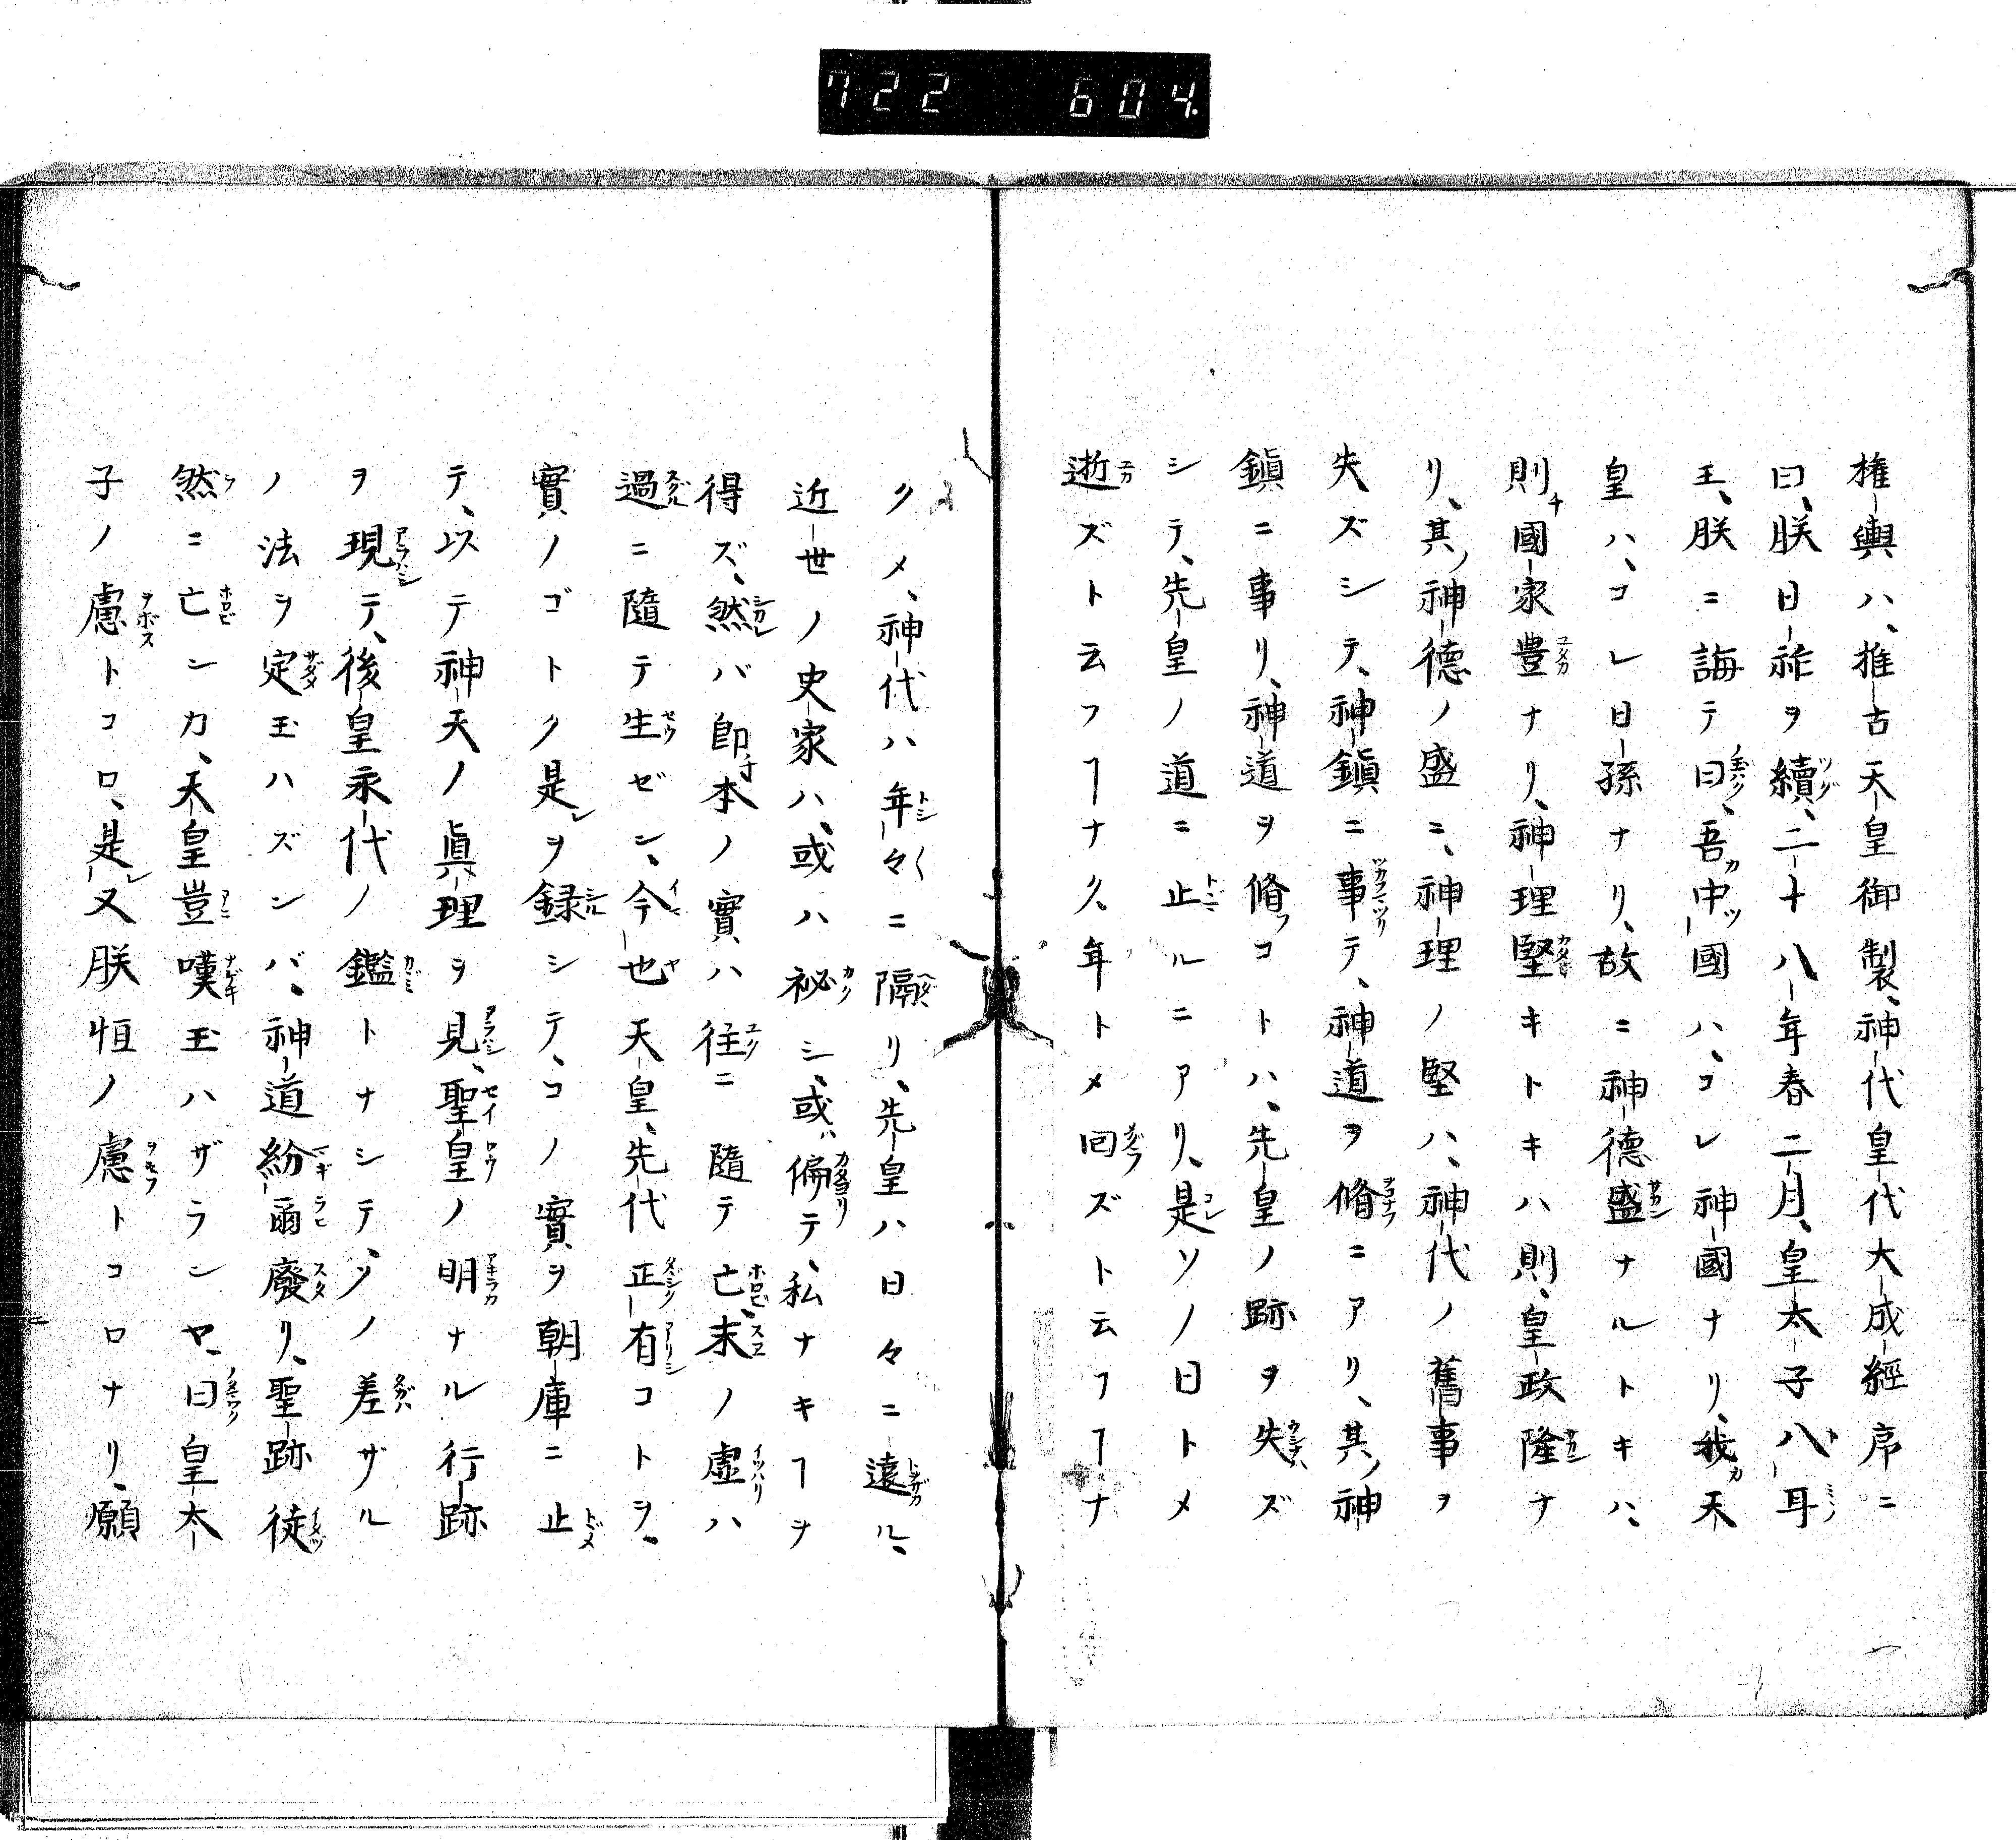 722 604.
権輿ハ、推古天皇御製、神代皇代大成經序ニ
曰、朕日祚ヲ續、二十八年春二月、皇太子八耳
王、朕ニ誨テ曰、吾中國ハ、コレ神國ナリ、我天
皇ハ、コレ日孫ナリ、故ニ神德盛ナルトキハ、
則國家豊ナリ、神理堅キトキハ則、皇政隆ナ
リ、其神德ノ盛ニ、神理ノ堅ハ、神代ノ舊事ヲ
失ズシテ、神鎭ニ事テ、神道ヲ脩ニアリ、其神
鎭ニ事リ、神道ヲ脩コトハ、先皇ノ跡ヲ失ズ
シテ、先皇ノ道ニ止ルニアリ、是ソノ日トメ
逝ズト云フヿナク、年トメ回ズト云フヿナ
クメ、神代ハ年々ニ隔リ、先皇ハ日々ニ遠ル、
近世ノ史家ハ、或ハ祕シ、或偏テ、私ナキヿヲ
得ズ、然バ卽本ノ實ハ往ニ隨テ亡、末ノ虚ハ
過ニ隨テ生ゼン、今也天皇、先代正有コトヲ、
實ノゴトク是ヲ録シテ、コノ實ヲ朝庫ニ止
テ、以テ神天ノ眞理ヲ見、聖皇ノ明ナル行跡
ヲ現テ、後皇永代ノ鑑トナシテ、ソノ差ザル
ノ法ヲ定玉ハズンバ、神道紛爾廢リ、聖跡徒
然ニ亡ンカ、天皇豈嘆玉ハザランヤ、曰皇太
子ノ慮トコロ、是又朕恒ノ慮トコロナリ、願